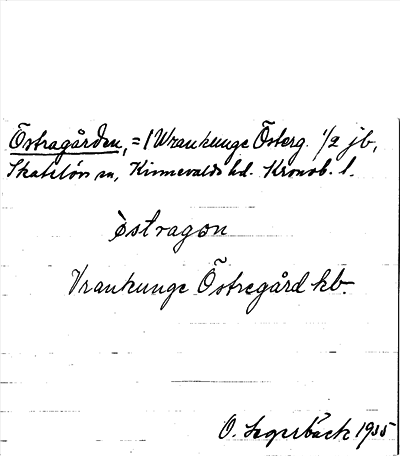 Östragården, = 1 Wrankunge Österg. 1/2 jb,
Skatelövs sn, Kinnevalds hd. Kronob. l.
östragon
Vrankunge Östregård kb.
O. Sagerbäck 1935